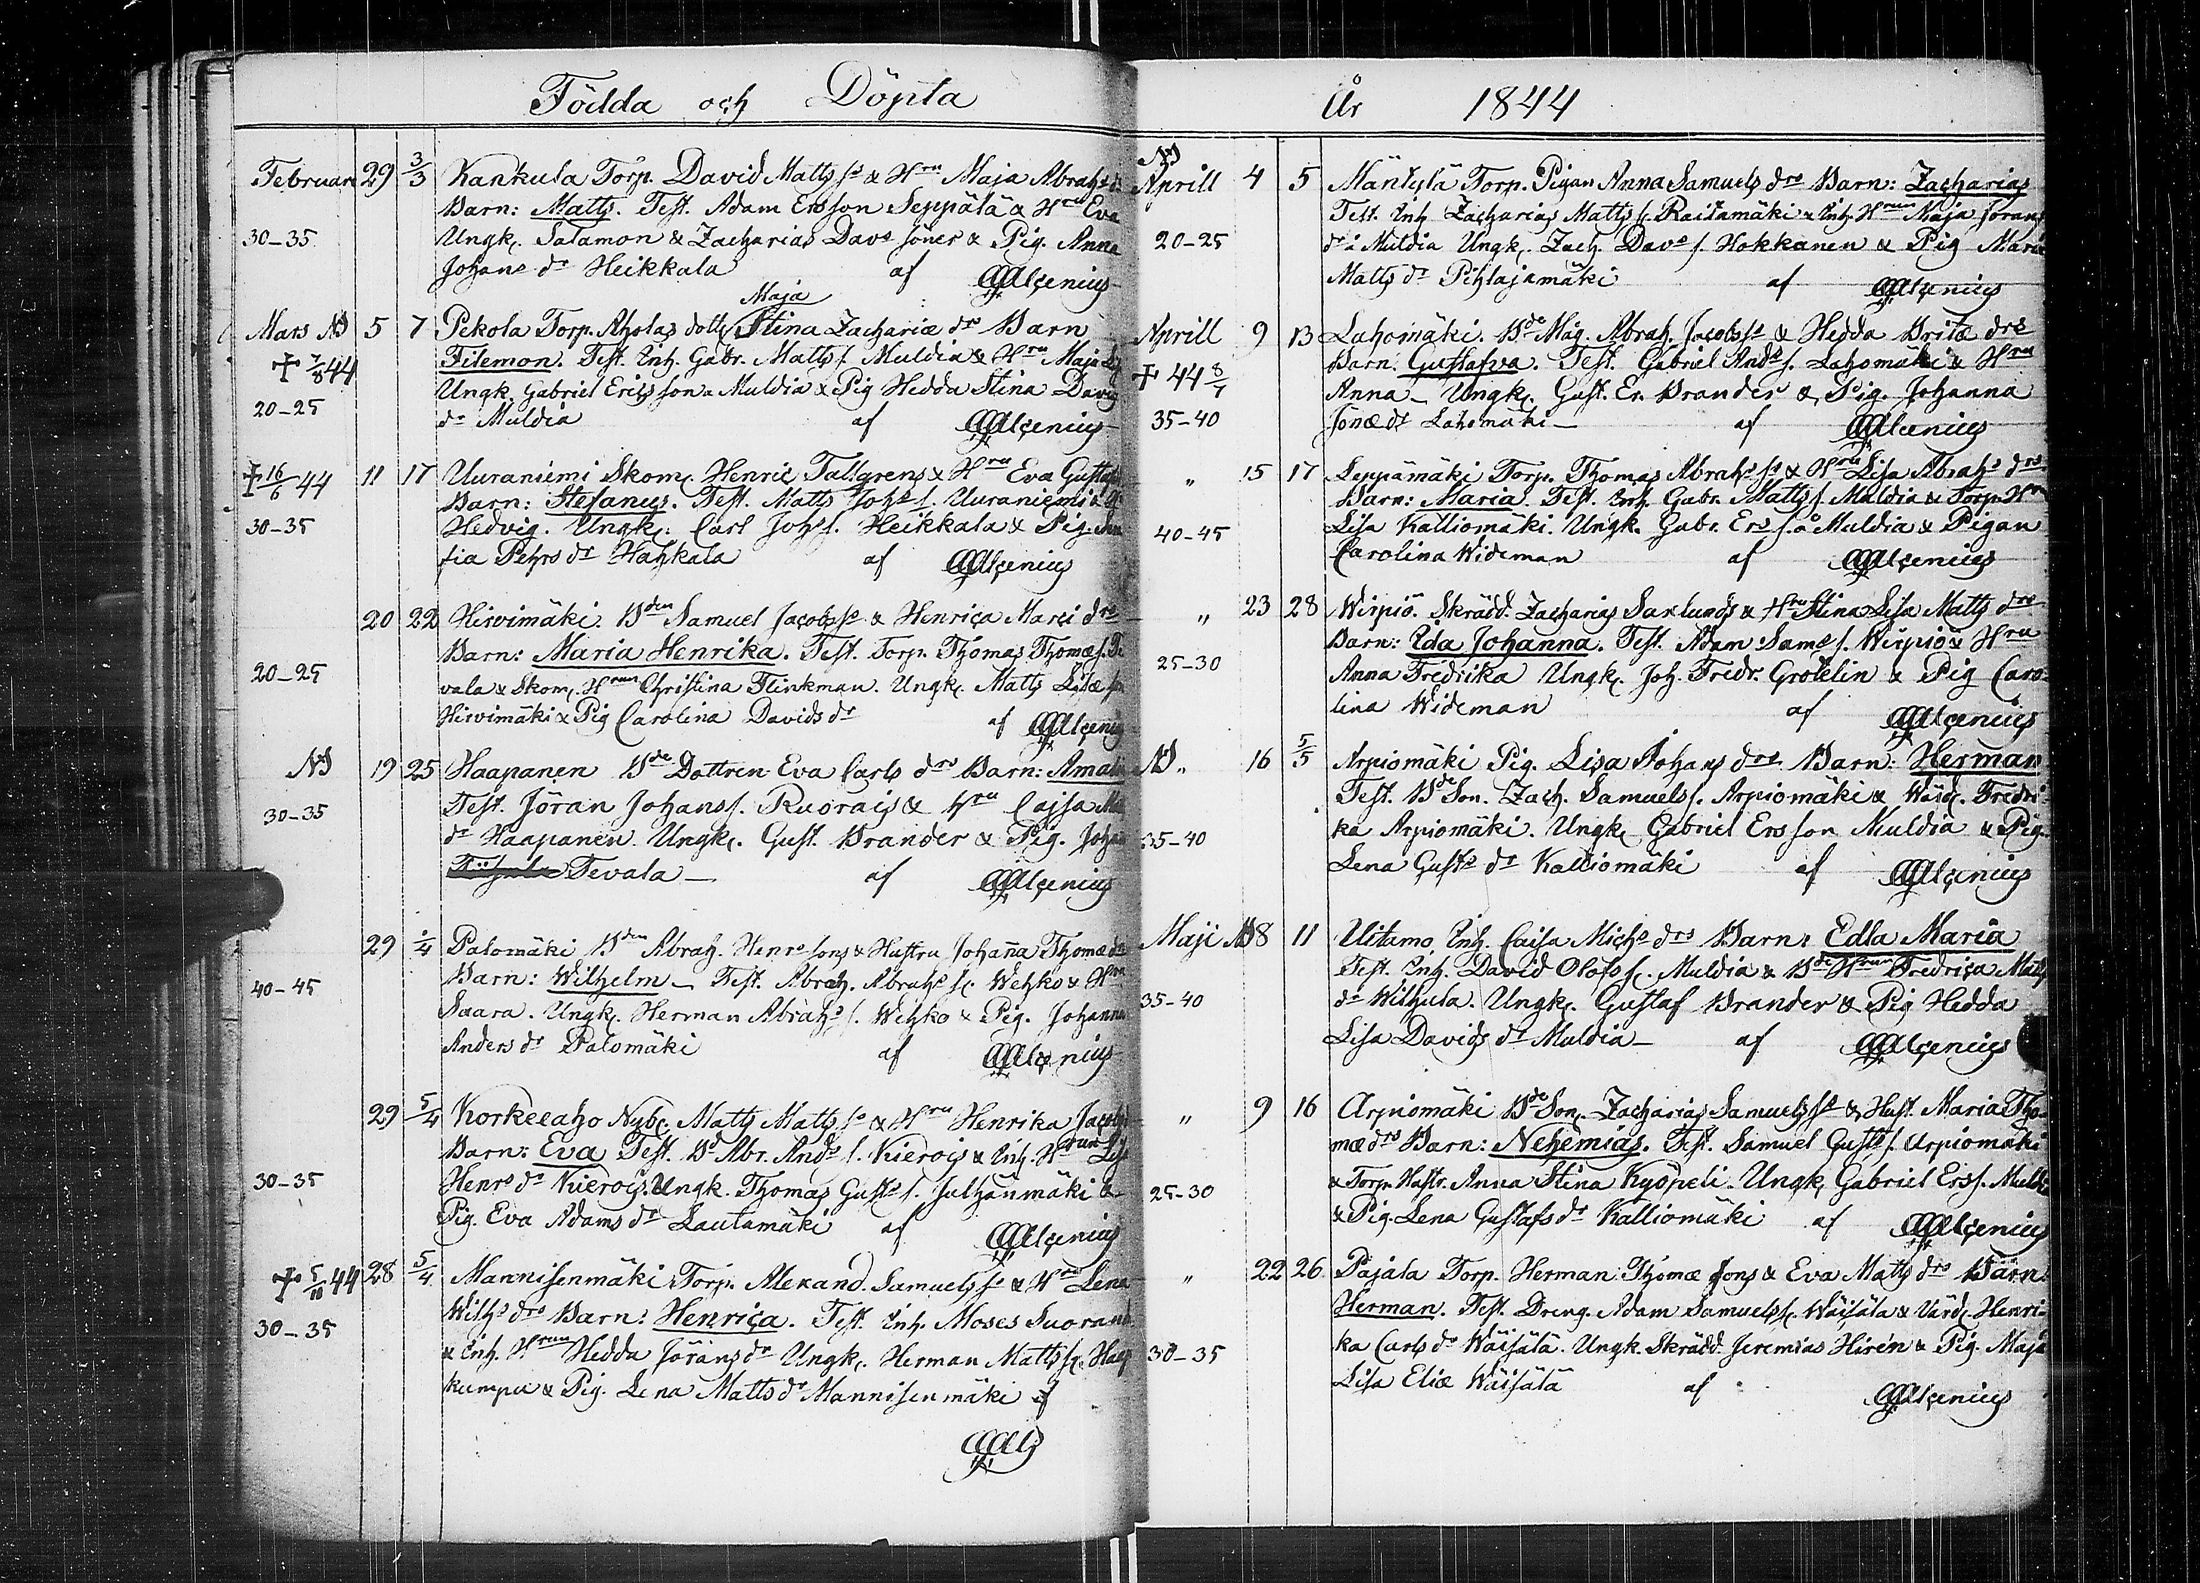 Födda och Döpta
Februari 29 3/3 Kankula Torp. David Matts s. & Hru Maja Abrahs d.
Barn: Matts. Test. Adam Ersson Seppälä & Hru Eva
30-35 Ungk. Salamon & Zacharias Davs söner & Pig. Anna
Johans dr Heikkala af Alcenius
Maja
Mars 5 7 Pekola Torp. Aholas dott. Stina Zachariæ drs Barn
+ 7/8 44 Filemon. Test. Inh. Gabr. Matts s. Muldia & Hru Maja
Ungk. Gabriel Ericsson Muldia & Pig Hedda Stina Davids
20-25 dr Muldia af Alcenius
+ 16/6 44 11 17 Uuraniemi Skom. Henric Tallgrens & Hru Eva Gustafs
Barn: Stefanus. Test. Matts Johs s. Uuraniemi &
30-35 Hedvig. Ungk. Carl Johs s. Heikkala & Pig.
fia Pehrs dr Hahkala af Alcenius
20 22 Hirvimäki Bden Samuel Jacobss. & Henrica Marci drs
Barn: Maria Henrika. Test. Torp. Thomas Thomæ s. Te
20-25 vala & Skom. Hrun Christina Flinkman. Ungk. Matts
Hirvimäki & Pig Carolina Davids dr af Alcenius
19 25 Haapanen Bde Dottren Eva Carls drs Barn: Amalia
30-35 Test. Jöran Johans s. Ruorais & Hru Cajsa
dr Haapanen. Ungk. Gust. Brander & Pig. Johan
Tevala af Alcenius
29 1/4 Palomäki Bden Abrah. Henrs sons & Hustru Johanna Thomæ drs
40-45 Barn: Wilhelm Test. Abrah. Abrahs s. Wehko & Hru
Saara. Ungk. Herman Abrahs s. Wehko & Pig. Johanna
Anders dr Palomäki af Alcenius
29 5/4 Korkeeaho Nyb. Matts Matts s. & Hru Henrika Jacobs
Barn: Eva Test. Bd Abr. Ands s. Kierois & Inh. Hrun Lisa
30-35 Henrs dr Kierois. Ungk. Thomas Gusts s. Julhänmäki &
Pig. Eva Adams dr Lautamäki af Alcenius
+ 5/11 44 28 5/4 Mannisenmäki Torp. Alexand. Samuels s. & Hru Lena
30-35 Wilhs drs Barn: Henrica. Test. Inh. Moses
& Inh. Hrun Hedda Jörans dr Ungk. Herman Matts s.
kumpu & Pig. Lena Matts dr Mannisenmäki af
År 1844
Aprill 4 5 Mäntylä Torp. Pigan Anna Samuels drs Barn: Zacharias
Test. Inh. Zacharias Matts s. Raitamäki & Inh. Hrun Maja Jörans
20-25 dr i Muldia Ungk. Zach. Davs s. Hokkanen & Pig Maria
Matts dr Pihlajamäki af Alcenius
Aprill 9 13 Lahomäki. Bde Måg. Abrah. Jacobss. & Hedda Brita drs
+ 44 8/7 Barn: Gustafva. Test. Gabriel Ands s. Lahomäki & Hru
Anna Ungk. Gust. Er. Brander & Pig. Johanna
35-40 Jonæ dr Lahomäki af Alcenius
" 15 17 Seppämäki Torp. Thomas Abrahs s. & Hru Lisa Abrahs drs
Barn: Maria. Test. Inh. Gabr. Matts s. Muldia & Torp. Hru
40-45 Lisa Kalliomäki. Ungk. Gabr. Ers s. Muldia & Pigan
Carolina Wideman af Alcenius
" 23 28 Wirpiö. Skrädd. Zacharias Saxlunds & Hru Stina Lisa Matts drs
Barn: Ida Johanna. Test. Adam Sams s. Wirpiö & Hru
25-30 Anna Fredrika Ungk. Joh. Fredr. Grotelin & Pig Caro-
lina Wideman af Alcenius
" 16 5/5 Arpiomäki Pig. Lisa Johans drs Barn: Herman
Test. Bde Son. Zach. Samuels s. Arpiomäki & Wärd. Fredri-
35-40 ka Arpiomäki. Ungk. Gabriel Ersson Muldia & Pig.
Lena Gusts dr Kalliomäki af Alcenius
Maji 8 11 Uitamo Inh. Caisa Michs drs Barn: Edla Maria
Test. Inh. David Olofs s. Muldia & Bde Hrun Fredrica Matts
35-40 dr Wilhula. Ungk. Gustaf Brander & Pig Hedda
Lisa Davids dr Muldia af Alcenius
" 9 16 Arpiomäki Bde Son. Zacharias Samuels s. & Hust. Maria Tho-
mæ drs Barn: Nehemias. Test. Samuel Gusts s. Arpiomäki
25-30 & Torp. Hustr. Anna Stina Kyöpeli. Ungk. Gabriel Erss. Muldia
& Pig. Lena Gustafs dr Kalliomäki af Alcenius
" 22 26 Pajala Torp. Herman Thomæ sons & Eva Matts drs Barn:
Herman. Test. Dreng. Adam Samuels s. Wäisälä & Wärd. Henri-
30-35 ka Carls dr Wäisälä. Ungk. Skrädd. Jeremias Hirén & Pig. Maja
Lisa Eliæ Wäisälä af Alcenius